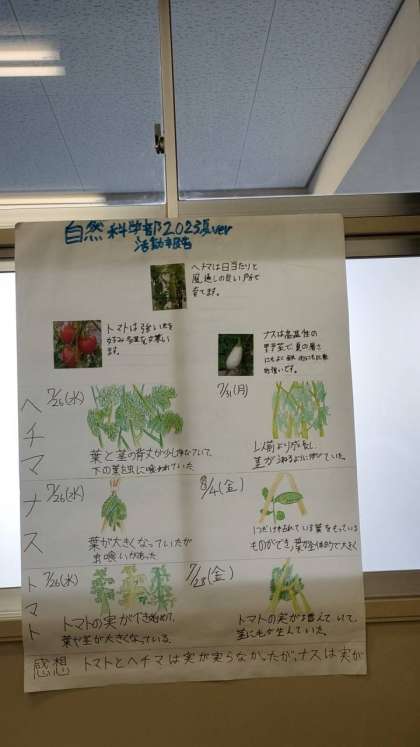 自然科学部2023夏ver
活動報告
ヘチマは日当たりと
風通しの良い所で
育てます。
トマトは強い光を
好み
ます。
ナスは高温性の
野菜で夏の暑さ
にも
強いです。
ヘチマ
7/26(水)
葉と茎の背丈が少し
下の葉は虫に喰われていた。
7/31(月)
以前より成長し、
茎が
ナス
7/26(水)
葉が大きくなっていたが
虫喰いがあった
8/4(金)
1つだけ
葉をもっている
ものができ、葉が全体的に大きく
トマト
7/26(水)
トマトの実ができ始めて、
葉や茎が大きくなっている。
7/28(金)
トマトの実が増えていて、
茎に毛が生えていた。
感想 トマトとヘチマは実が実らなかったが、ナスは実が